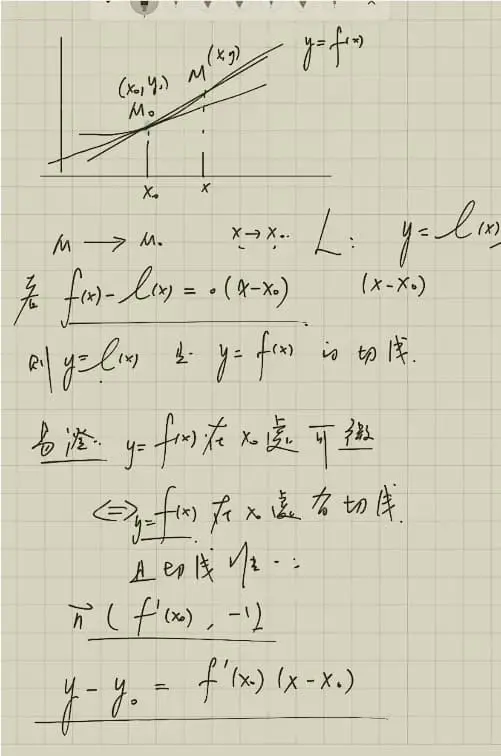 y=f(x)
M(x,y)
(x₀,y₀)
M₀
x₀ x
M → M₀ x→x₀. L: y=l(x)
若 f(x)-l(x)=o(x-x₀) (x-x₀)
则 y=l(x) 是 y=f(x) 的切线.
易证: y=f(x) 在 x₀ 處 可微
<=> y=f(x) 在 x₀ 處有切线.
且切线
n⃗ (f'(x₀), -1)
y-y₀ = f'(x₀)(x-x₀)